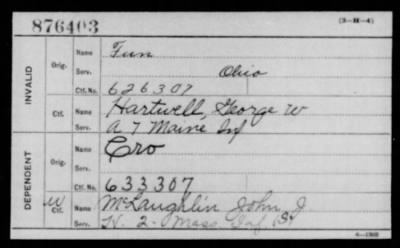 876403
(3—H—4)
INVALID
Orig.
Name Fun
Serv. Ohio
Ctf. No. 626307
Ctf.
Name Hartwell, George W
Serv. A 7 Maine Inf
DEPENDENT
Orig.
Name Cro
Serv.
Ctf. No. 633307
W Ctf.
Name McLaughlin John J
H. 2 Mass Inf